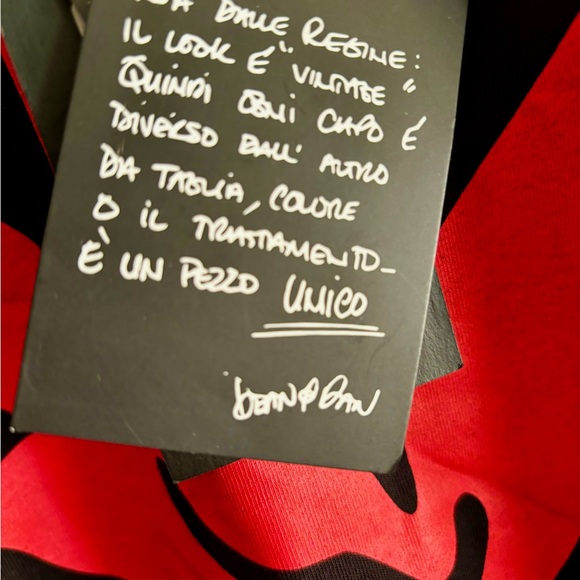 DALLE REGINE:
IL LOOK È "VINTAGE"
QUINDI OGNI CAPO È
DIVERSO DALL' ALTRO
DA TAGLIA, COLORE
O IL TRATTAMENTO_
È UN PEZZO UNICO
DEAN & DAN